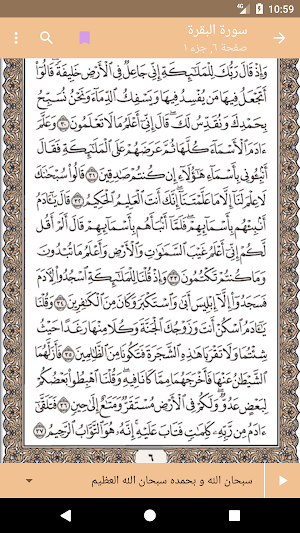 10:59
سورة البقرة
صفحة ٦, جزء ١
وَإِذْ قَالَ رَبُّكَ لِلْمَلَٰٓئِكَةِ إِنِّى جَاعِلٌ فِى ٱلْأَرْضِ خَلِيفَةً قَالُوٓا۟
أَتَجْعَلُ فِيهَا مَن يُفْسِدُ فِيهَا وَيَسْفِكُ ٱلدِّمَآءَ وَنَحْنُ نُسَبِّحُ
بِحَمْدِكَ وَنُقَدِّسُ لَكَ قَالَ إِنِّىٓ أَعْلَمُ مَا لَا تَعْلَمُونَ ٣٠ وَعَلَّمَ
ءَادَمَ ٱلْأَسْمَآءَ كُلَّهَا ثُمَّ عَرَضَهُمْ عَلَى ٱلْمَلَٰٓئِكَةِ فَقَالَ
أَنۢبِـُٔونِى بِأَسْمَآءِ هَٰٓؤُلَآءِ إِن كُنتُمْ صَٰدِقِينَ ٣١ قَالُوا۟ سُبْحَٰنَكَ
لَا عِلْمَ لَنَآ إِلَّا مَا عَلَّمْتَنَآ إِنَّكَ أَنتَ ٱلْعَلِيمُ ٱلْحَكِيمُ ٣٢ قَالَ يَٰٓـَٔادَمُ
أَنۢبِئْهُم بِأَسْمَآئِهِمْ فَلَمَّآ أَنۢبَأَهُم بِأَسْمَآئِهِمْ قَالَ أَلَمْ أَقُل
لَّكُمْ إِنِّىٓ أَعْلَمُ غَيْبَ ٱلسَّمَٰوَٰتِ وَٱلْأَرْضِ وَأَعْلَمُ مَا تُبْدُونَ
وَمَا كُنتُمْ تَكْتُمُونَ ٣٣ وَإِذْ قُلْنَا لِلْمَلَٰٓئِكَةِ ٱسْجُدُوا۟ لِـَٔادَمَ
فَسَجَدُوٓا۟ إِلَّآ إِبْلِيسَ أَبَىٰ وَٱسْتَكْبَرَ وَكَانَ مِنَ ٱلْكَٰفِرِينَ ٣٤ وَقُلْنَا
يَٰٓـَٔادَمُ ٱسْكُنْ أَنتَ وَزَوْجُكَ ٱلْجَنَّةَ وَكُلَا مِنْهَا رَغَدًا حَيْثُ
شِئْتُمَا وَلَا تَقْرَبَا هَٰذِهِ ٱلشَّجَرَةَ فَتَكُونَا مِنَ ٱلظَّٰلِمِينَ ٣٥ فَأَزَلَّهُمَا
ٱلشَّيْطَٰنُ عَنْهَا فَأَخْرَجَهُمَا مِمَّا كَانَا فِيهِ وَقُلْنَا ٱهْبِطُوا۟ بَعْضُكُمْ
لِبَعْضٍ عَدُوٌّ وَلَكُمْ فِى ٱلْأَرْضِ مُسْتَقَرٌّ وَمَتَٰعٌ إِلَىٰ حِينٍ ٣٦ فَتَلَقَّىٰٓ
ءَادَمُ مِن رَّبِّهِۦ كَلِمَٰتٍ فَتَابَ عَلَيْهِ إِنَّهُۥ هُوَ ٱلتَّوَّابُ ٱلرَّحِيمُ ٣٧
٦
سبحان الله و بحمده سبحان الله العظيم